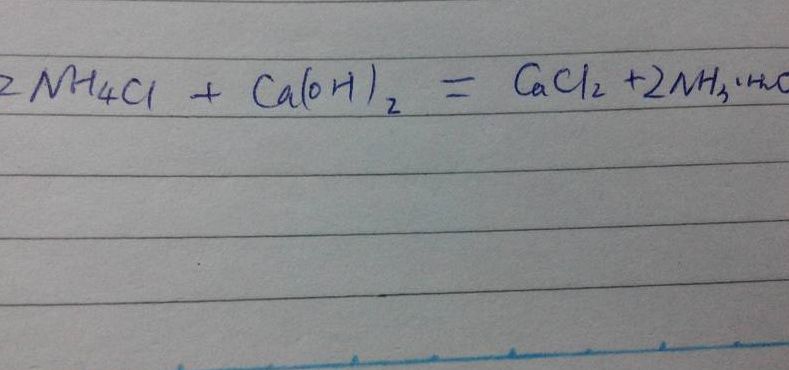 2NH₄Cl + Ca(OH)₂ = CaCl₂ + 2NH₃·H₂O